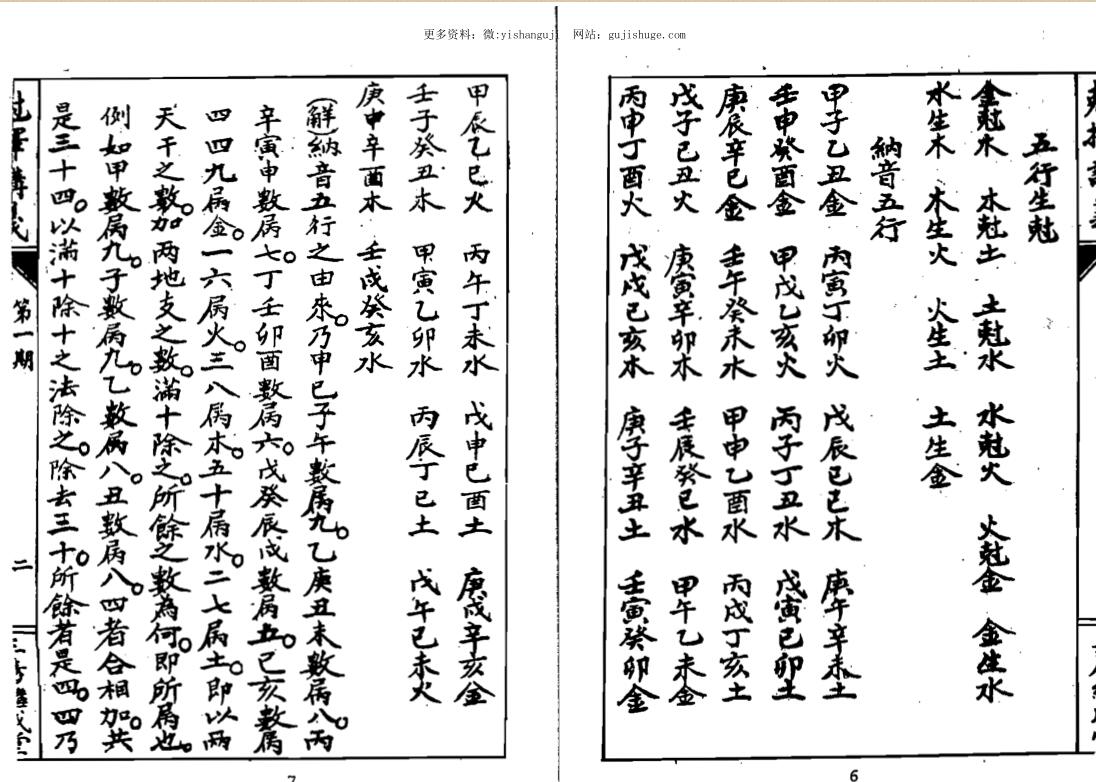 更多资料：微:yishanguji 网站：gujishuge.com
五行生尅
金尅木 木尅土 土尅水 水尅火 火尅金 金生水
水生木 木生火 火生土 土生金
納音五行
甲子乙丑金 丙寅丁卯火 戊辰己巳木 庚午辛未土
壬申癸酉金 甲戌乙亥火 丙子丁丑水 戊寅己卯土
庚辰辛巳金 壬午癸未木 甲申乙酉水 丙戌丁亥土
戊子己丑火 庚寅辛卯木 壬辰癸巳水 甲午乙未金
丙申丁酉火 戊戌己亥木 庚子辛丑土 壬寅癸卯金
6
甲辰乙巳火 丙午丁未水 戊申己酉土 庚戌辛亥金
壬子癸丑木 甲寅乙卯水 丙辰丁巳土 戊午己未火
庚申辛酉木 壬戌癸亥水
(解)納音五行之由來。乃甲己子午數屬九。乙庚丑未數屬八。丙
辛寅申數屬七。丁壬卯酉數屬六。戊癸辰戌數屬五。巳亥數屬
四四九屬金。一六屬火。三八屬木。五十屬水。二七屬土。即以兩
天干之數。加兩地支之數。滿十除之。所餘之數為何。即所屬也。
例如甲數屬九。子數屬九。乙數屬八。丑數屬八。四者合相加。共
是三十四。以滿十除十之法除之。除去三十。所餘者是四。四乃
第一期 二
7